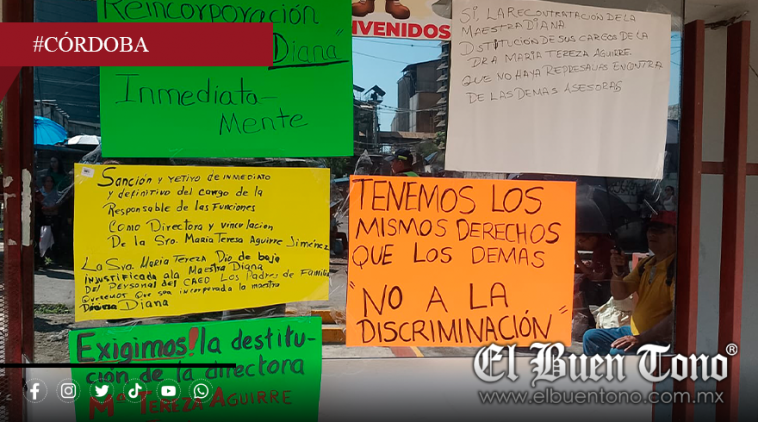 #CÓRDOBA
Reincorporación
Diana"
Inmediata-
Mente
BIENVENIDOS
SI, LA RECONTRATACIÓN DE LA
MAESTRA DIANA
DSTITUCIÓN DE SUS CARGOS DE LA
DRA MARIA TEREZA AGUIRRE
QUE NO HAYA REPRESALIAS ENCONTRA
DE LAS DEMAS ASESORAS
Sanción y retiro de inmediato
y definitivo del cargo de la
Responsable de las Funciones
Como Directora y vinculacion
De la Sra. Maria Teresa Aguirre Jiménez
La Sra Maria Tereza Dio de baja
injustificada ala Maestra Diana
Del Personal del CAED Los Padres de Familia
Queremos que sea incorporada la maestra
Diana
TENEMOS LOS
MISMOS DERECHOS
QUE LOS DEMAS
"NO A LA
DISCRIMINACIÓN"
Exigimos! la destitu-
ción de la directora
Mª TEREZA AGUIRRE
El Buen Tono®
www.elbuentono.com.mx